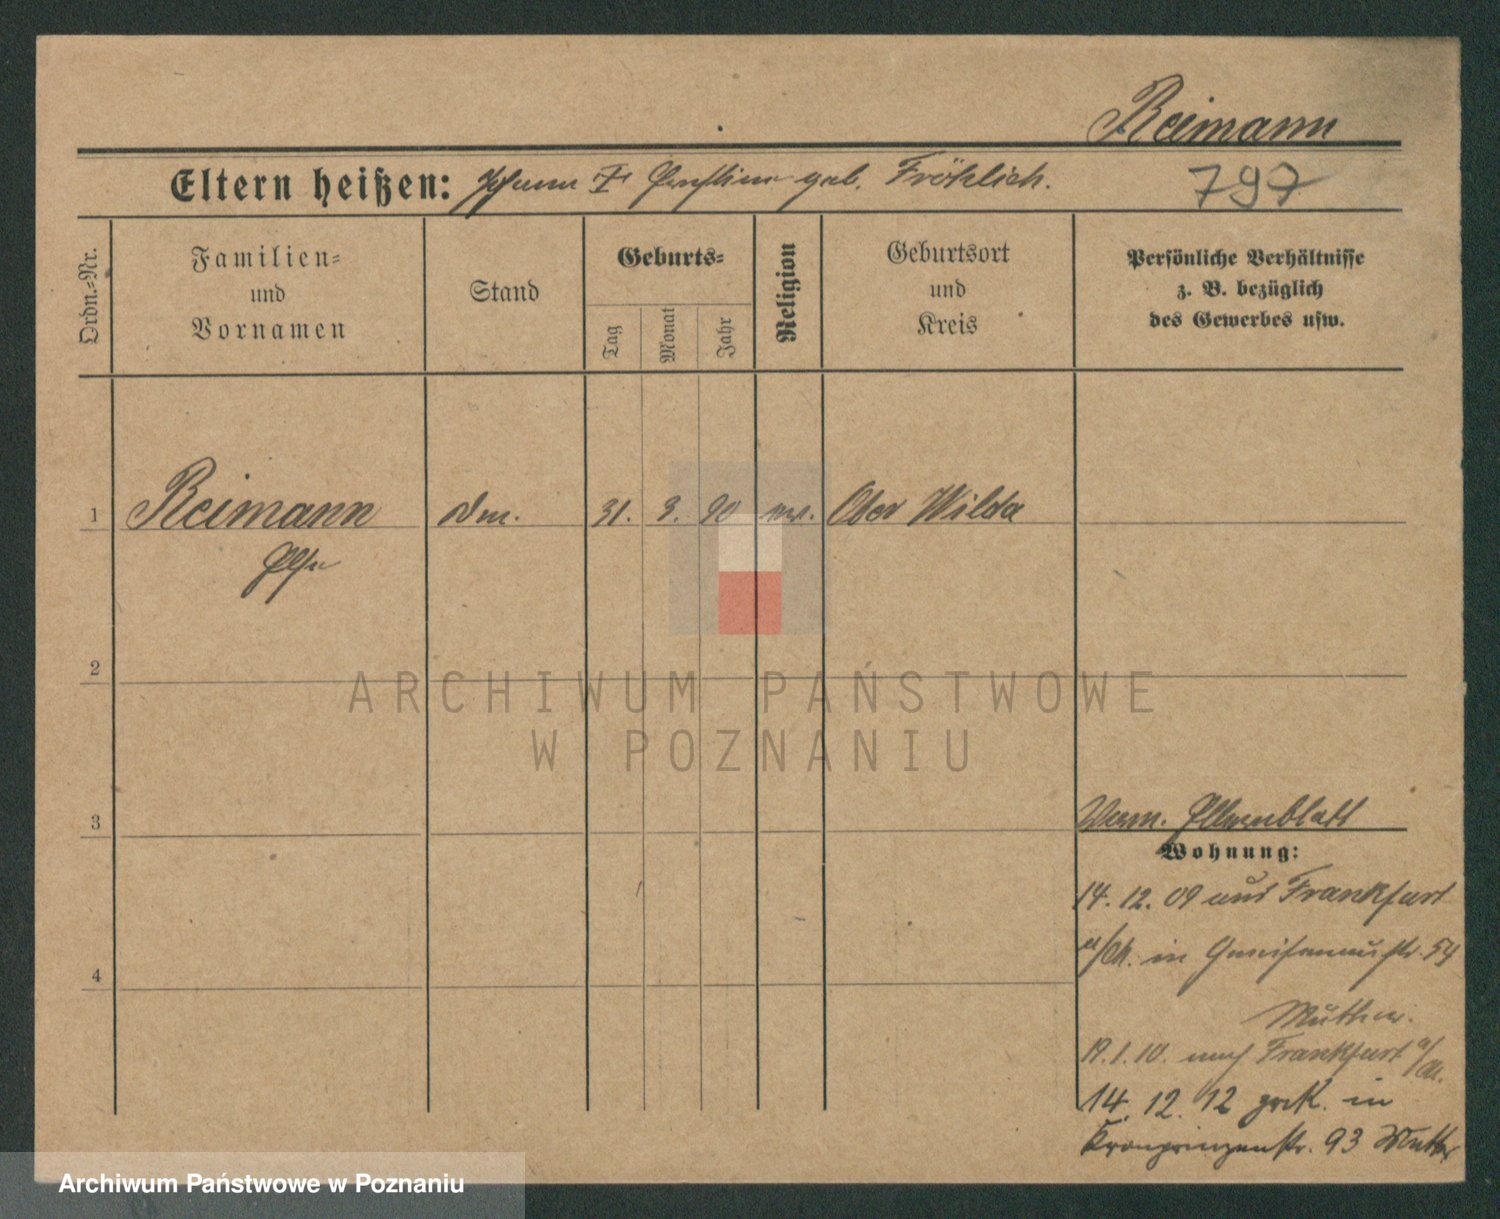 Reimann
Eltern heißen: Johann † Ernstine geb. Fröhlich.
797
Ordn.=Nr.
Familien=
und
Vornamen
Stand
Geburts=
Tag
Monat
Jahr
Religion
Geburtsort
und
Kreis
Persönliche Verhältnisse
z. B. bezüglich
des Gewerbes usw.
1 Reimann 31. 3. 90 ev. Ober Wilda
Else
2
ARCHIWUM PAŃSTWOWE
W POZNANIU
3
Verm. Elternblatt
Wohnung:
14. 12. 09 aus Frankfurt
a/M. in Gneisenaustr. 54
4
Mutter.
19.1.10. nach Frankfurt a/M.
14. 12. 12 zrck. in
Kronprinzenstr. 93 Mutter
Archiwum Państwowe w Poznaniu